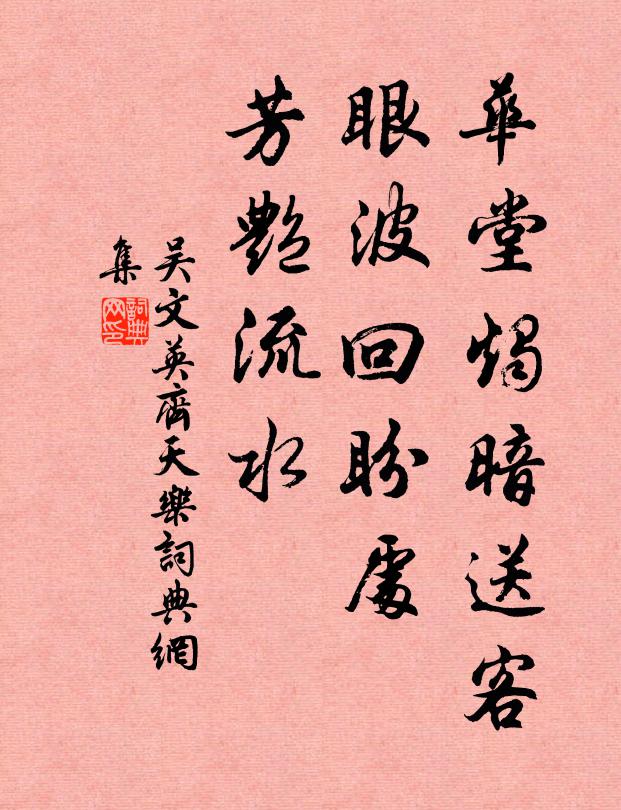 華堂燭暗送客
眼波回盼處
芳艷流水
吳文英齊天樂詞典網
集
詞典網印